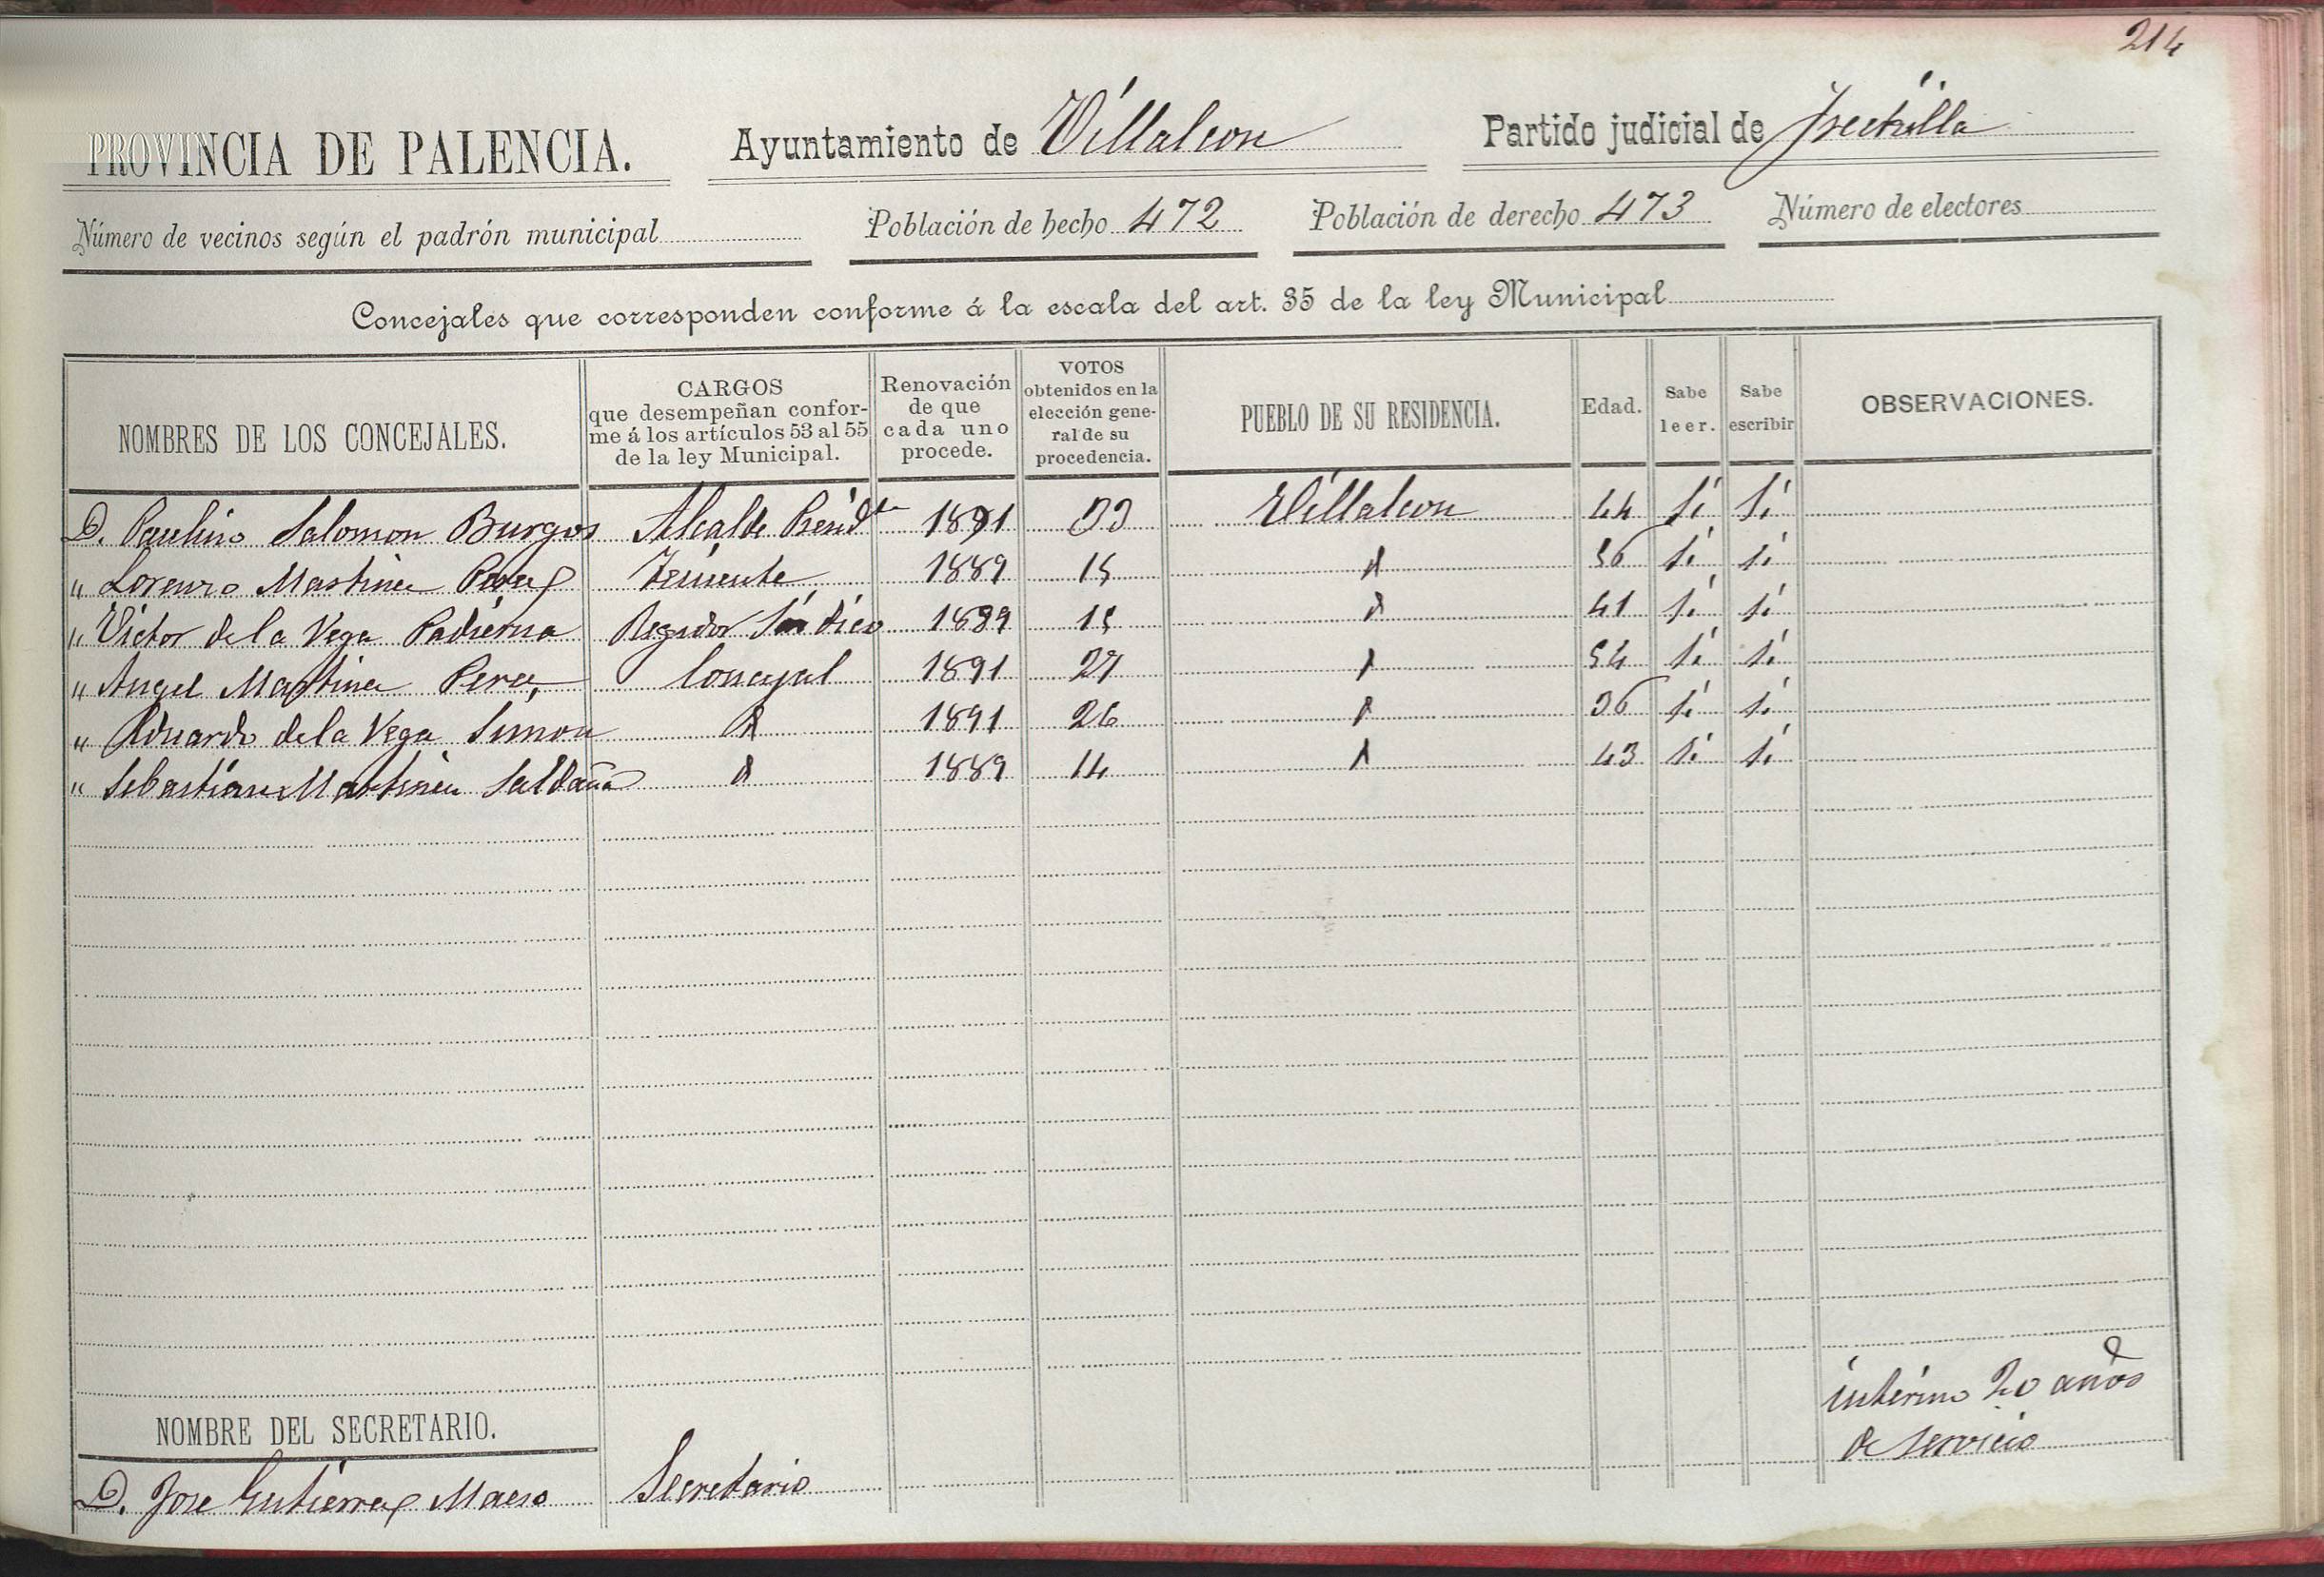 214
PROVINCIA DE PALENCIA. Ayuntamiento de Villaleon Partido judicial de Frechilla
Número de vecinos según el padrón municipal Población de hecho 472 Población de derecho 473 Número de electores
Concejales que corresponden conforme á la escala del art. 35 de la ley Municipal
NOMBRES DE LOS CONCEJALES. CARGOS que desempeñan confor-me á los artículos 53 al 55 de la ley Municipal. Renovación de que cada uno procede. VOTOS obtenidos en la elección gene-ral de su procedencia. PUEBLO DE SU RESIDENCIA. Edad. Sabe leer. Sabe escribir OBSERVACIONES.
D. Paulino Salomon Burgos Alcalde Presidte 1891 33 Villaleon 44 Sí Sí
" Lorenzo Martinez Perez Teniente 1889 15 " 56 sí sí
" Victor de la Vega Padierna Regidor Síndico 1889 15 " 41 sí sí
" Angel Martinez Perez Concejal 1891 27 " 54 sí sí
" Eduardo de la Vega Simon " 1891 26 " 36 sí sí
" Sebastian Martinez Saldaña " 1889 14 " 43 sí sí
NOMBRE DEL SECRETARIO.
D. Jose Gutierrez Maeso Secretario interino 20 años
de servicio